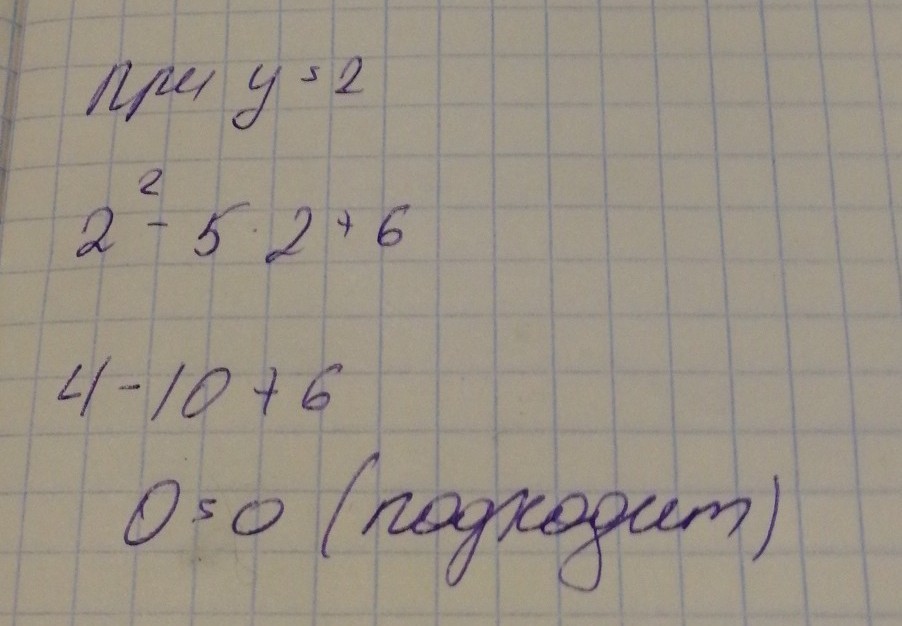 при y = 2
2² - 5 · 2 + 6
4 - 10 + 6
0 = 0 (подходит)